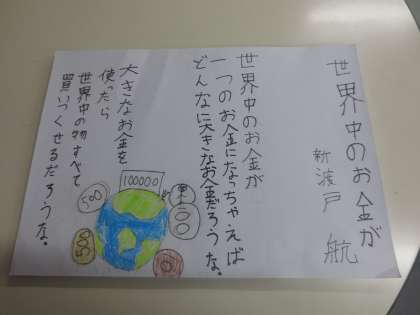 世界中のお金が
新波戸 航
世界中のお金が
一つのお金になっちゃえば
どんなに大きなお金だろうな。
大きなお金を
使ったら
世界中の物すべて
買いつくせるだろうな。
100000
500
500